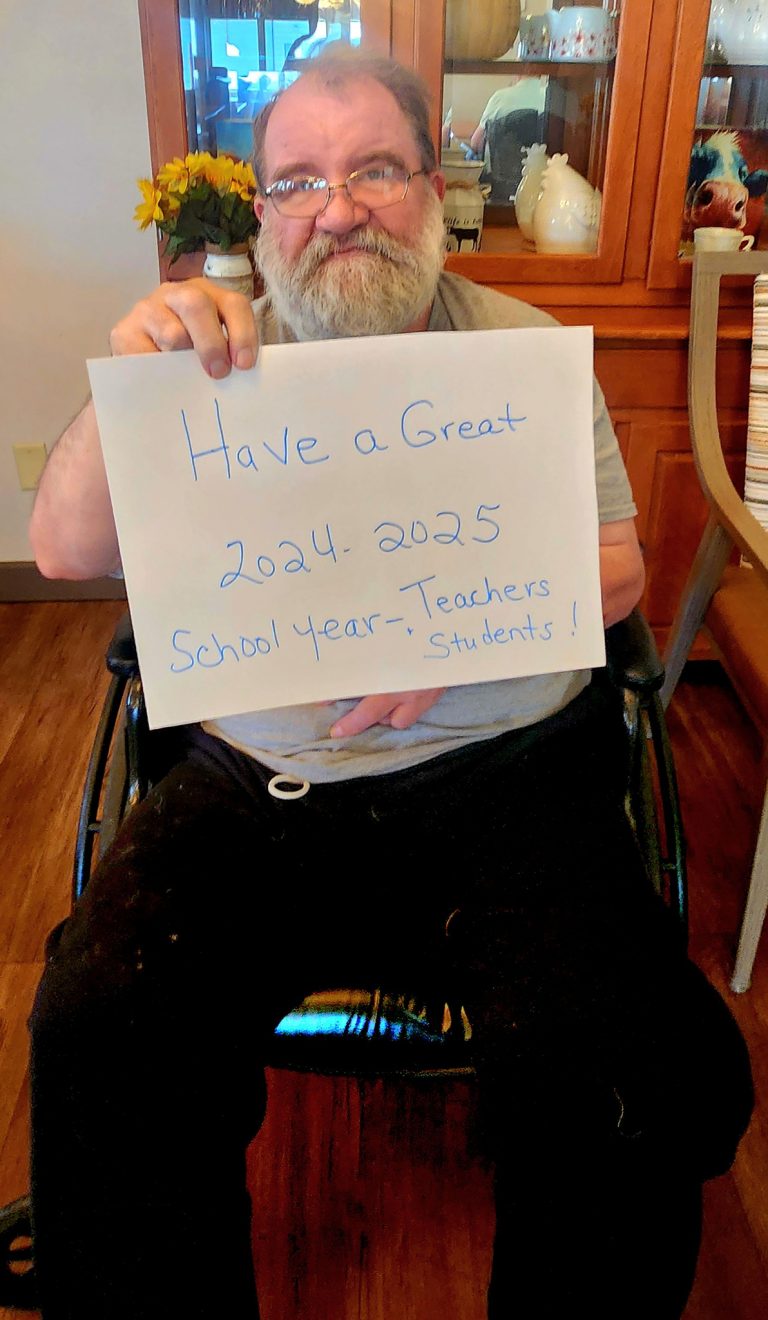 Have a Great
2024-2025
School year-. Teachers
Students!
life is be